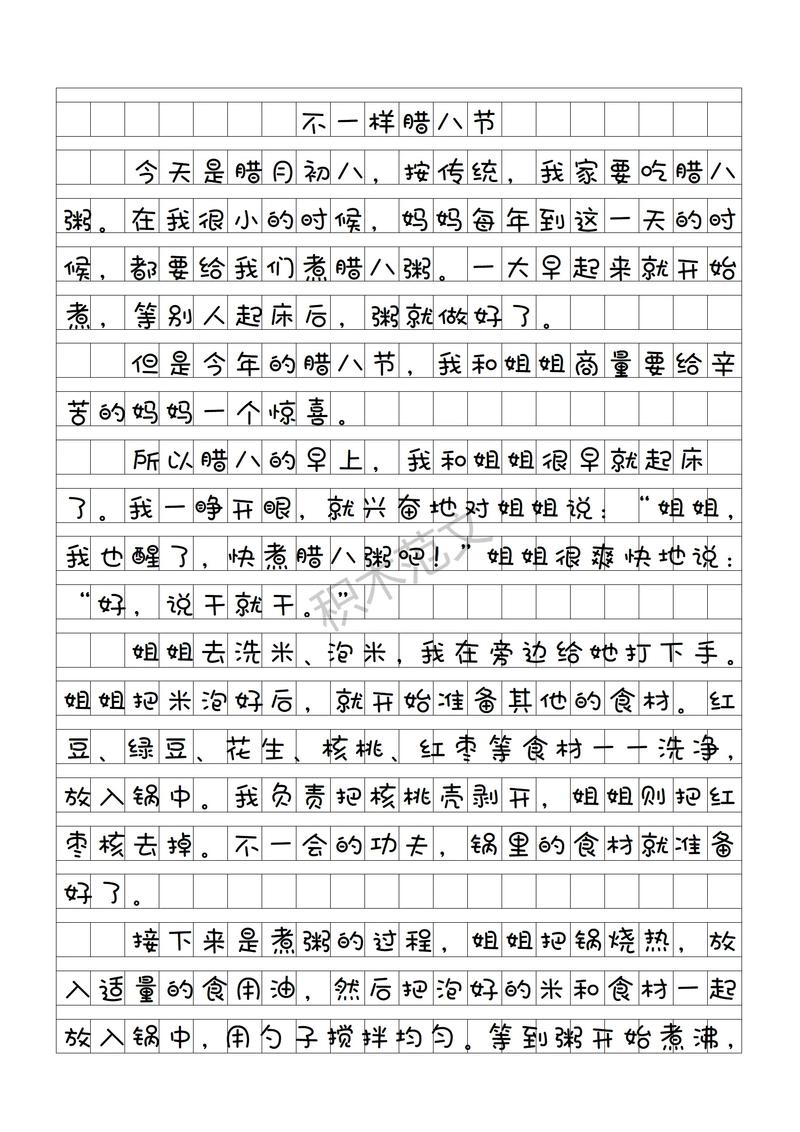 不一样腊八节
今天是腊月初八，按传统，我家要吃腊八
粥。在我很小的时候，妈妈每年到这一天的时
候，都要给我们煮腊八粥。一大早起来就开始
煮，等别人起床后，粥就做好了。
但是今年的腊八节，我和姐姐商量要给辛
苦的妈妈一个惊喜。
所以腊八的早上，我和姐姐很早就起床
了。我一睁开眼，就兴奋地对姐姐说：“姐姐，
我也醒了，快煮腊八粥吧！”姐姐很爽快地说：
“好，说干就干。”
姐姐去洗米、泡米，我在旁边给她打下手。
姐姐把米泡好后，就开始准备其他的食材。红
豆、绿豆、花生、核桃、红枣等食材一一洗净，
放入锅中。我负责把核桃壳剥开，姐姐则把红
枣核去掉。不一会的功夫，锅里的食材就准备
好了。
接下来是煮粥的过程，姐姐把锅烧热，放
入适量的食用油，然后把泡好的米和食材一起
放入锅中，用勺子搅拌均匀。等到粥开始煮沸，
积木范文